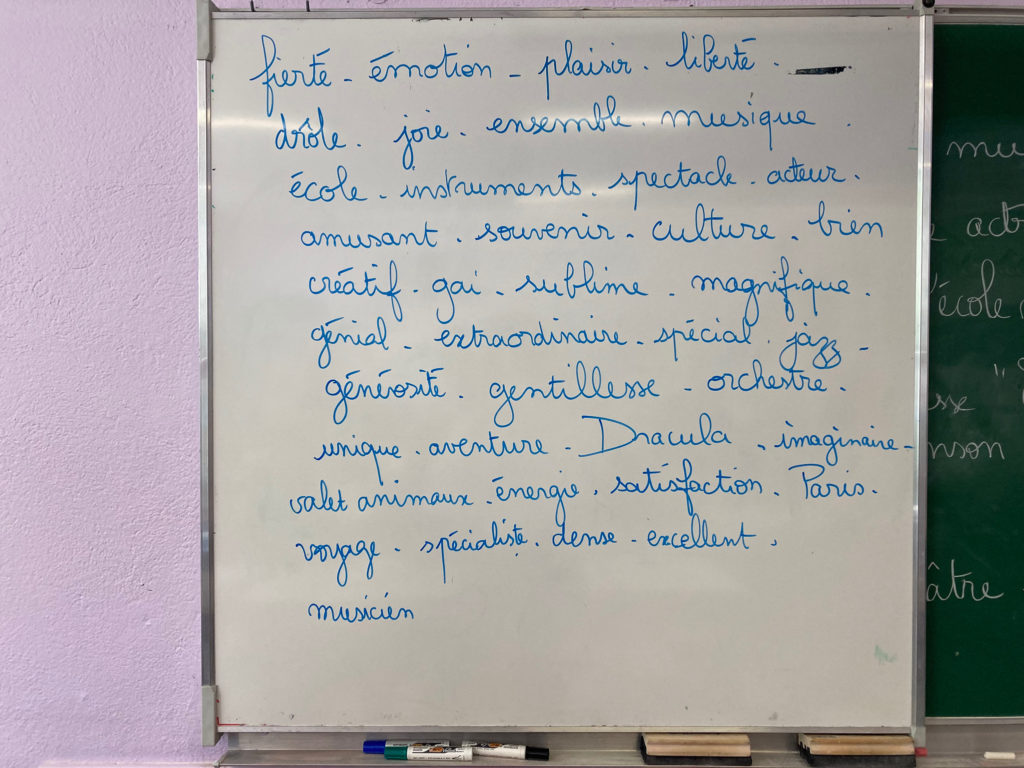 fierté - émotion - plaisir. liberté.
drôle. joie. ensemble. musique.
école. instruments. spectacle. acteur.
amusant. souvenir - culture. bien
créatif. gai. sublime. magnifique.
génial - extraordinaire. spécial. jazz -
généosité. gentillesse - orchestre.
unique. aventure - Dracula. imaginaire -
valet animaux. énergie. satisfaction. Paris.
voyage. spécialiste. dense - excellent.
musicien
mu
act
école
sse "
nson
âtre